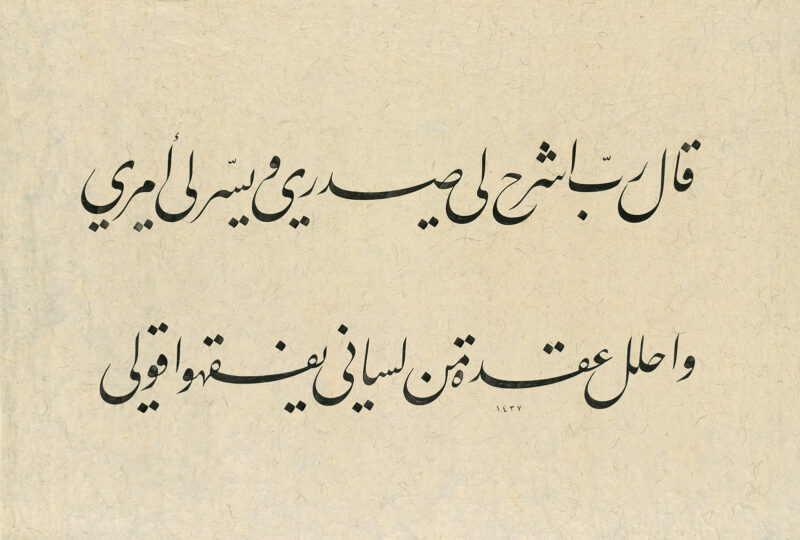 قال ربّ اشرح لي صدري ويسّر لي أمري
واحلل عقدة من لساني يفقهوا قولي
١٤٣٧